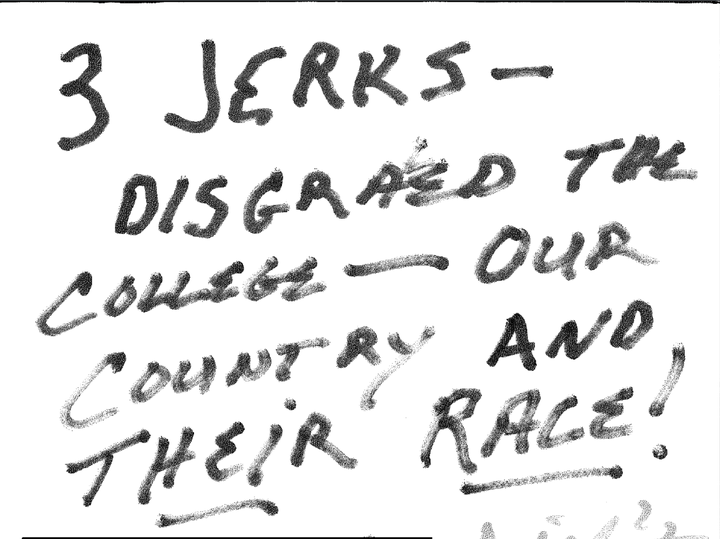 3 JERKS—
DISGRACED THE
COLLEGE — OUR
COUNTRY AND
THEIR RACE!